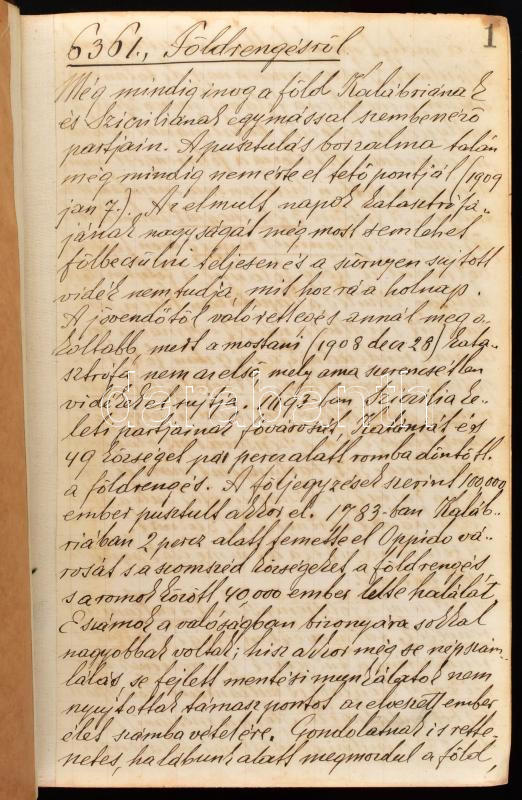 1
6361., Földrengésről.
Még mindig inog a föld Kalábriának
és Szicziliának egymással szembenéző
partjain. A pusztulás borzalma talán
még mindig nem érte el tetőpontját (1909
jan 7.). Az elmult napok katasztrófá-
jának nagyságát még most sem lehet
fölbecsülni teljesen és a szörnyen sujtott
vidék nem tudja, mit hoz rá a holnap.
A jövendőtől való rettegés annál meg o-
koltabb, mert a mostani (1908 decz 28) kata-
sztrófa nem az első mely ama szerencsétlen
vidékeket sujtja. 1693-ban Sziczilia ke-
leti partjainak fővárosát, Kataniát és
49 községet pár percz alatt romba döntött
a földrengés. A följegyzések szerint 100,000
ember pusztult akkor el. 1783-ban Kaláb-
riában 2 percz alatt temette el Oppido vá-
rosát s a szomszéd községeket a földrengés
s a romok között 40000 ember lelte halálát.
E számok a valóságban bizonyára sokkal
nagyobbak voltak; hisz akkor még se népszám-
lálás, se fejlett mentési munkálatok nem
nyujtottak támaszpontot az elveszett ember
élet számba vételére. Gondolatnak is rette-
netes, ha lábunk alatt megmordul a föld,
darabanth